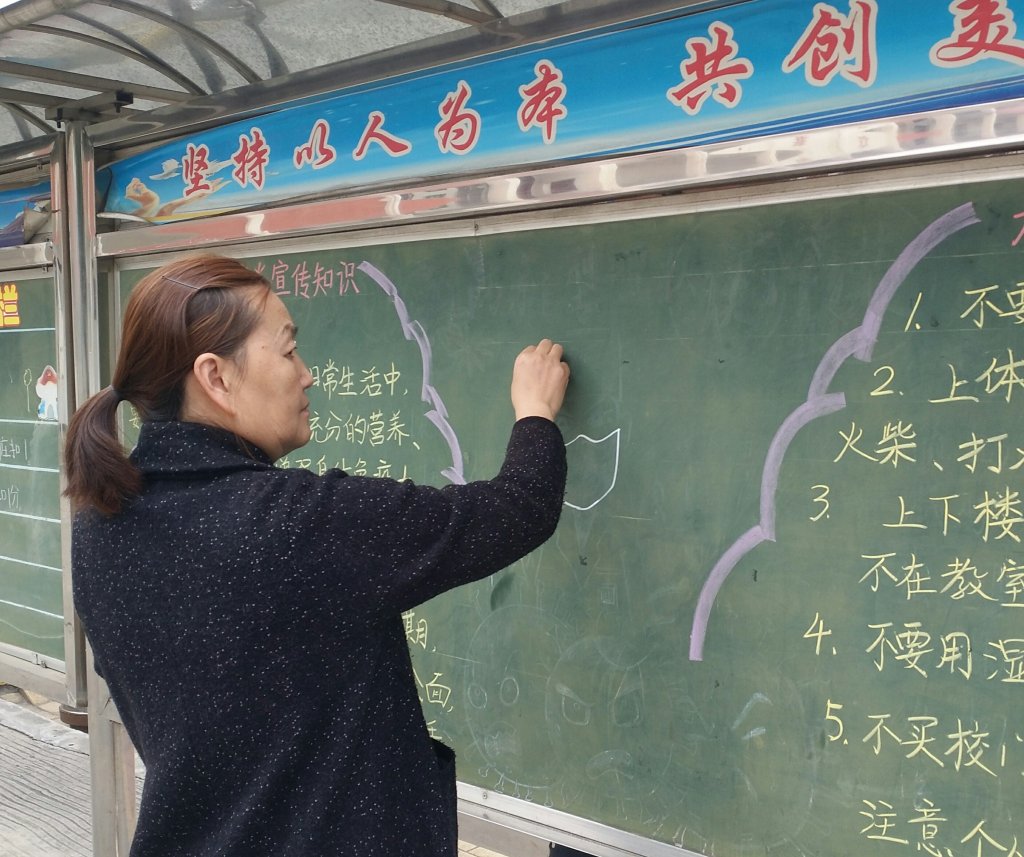 坚持以人为本 共创美
宣传知识
日常生活中,
充分的营养、
期,
面,
1. 不要
2. 上体
火柴、打火
3. 上下楼
不在教室
4. 不要用湿
5. 不买校门
注意个